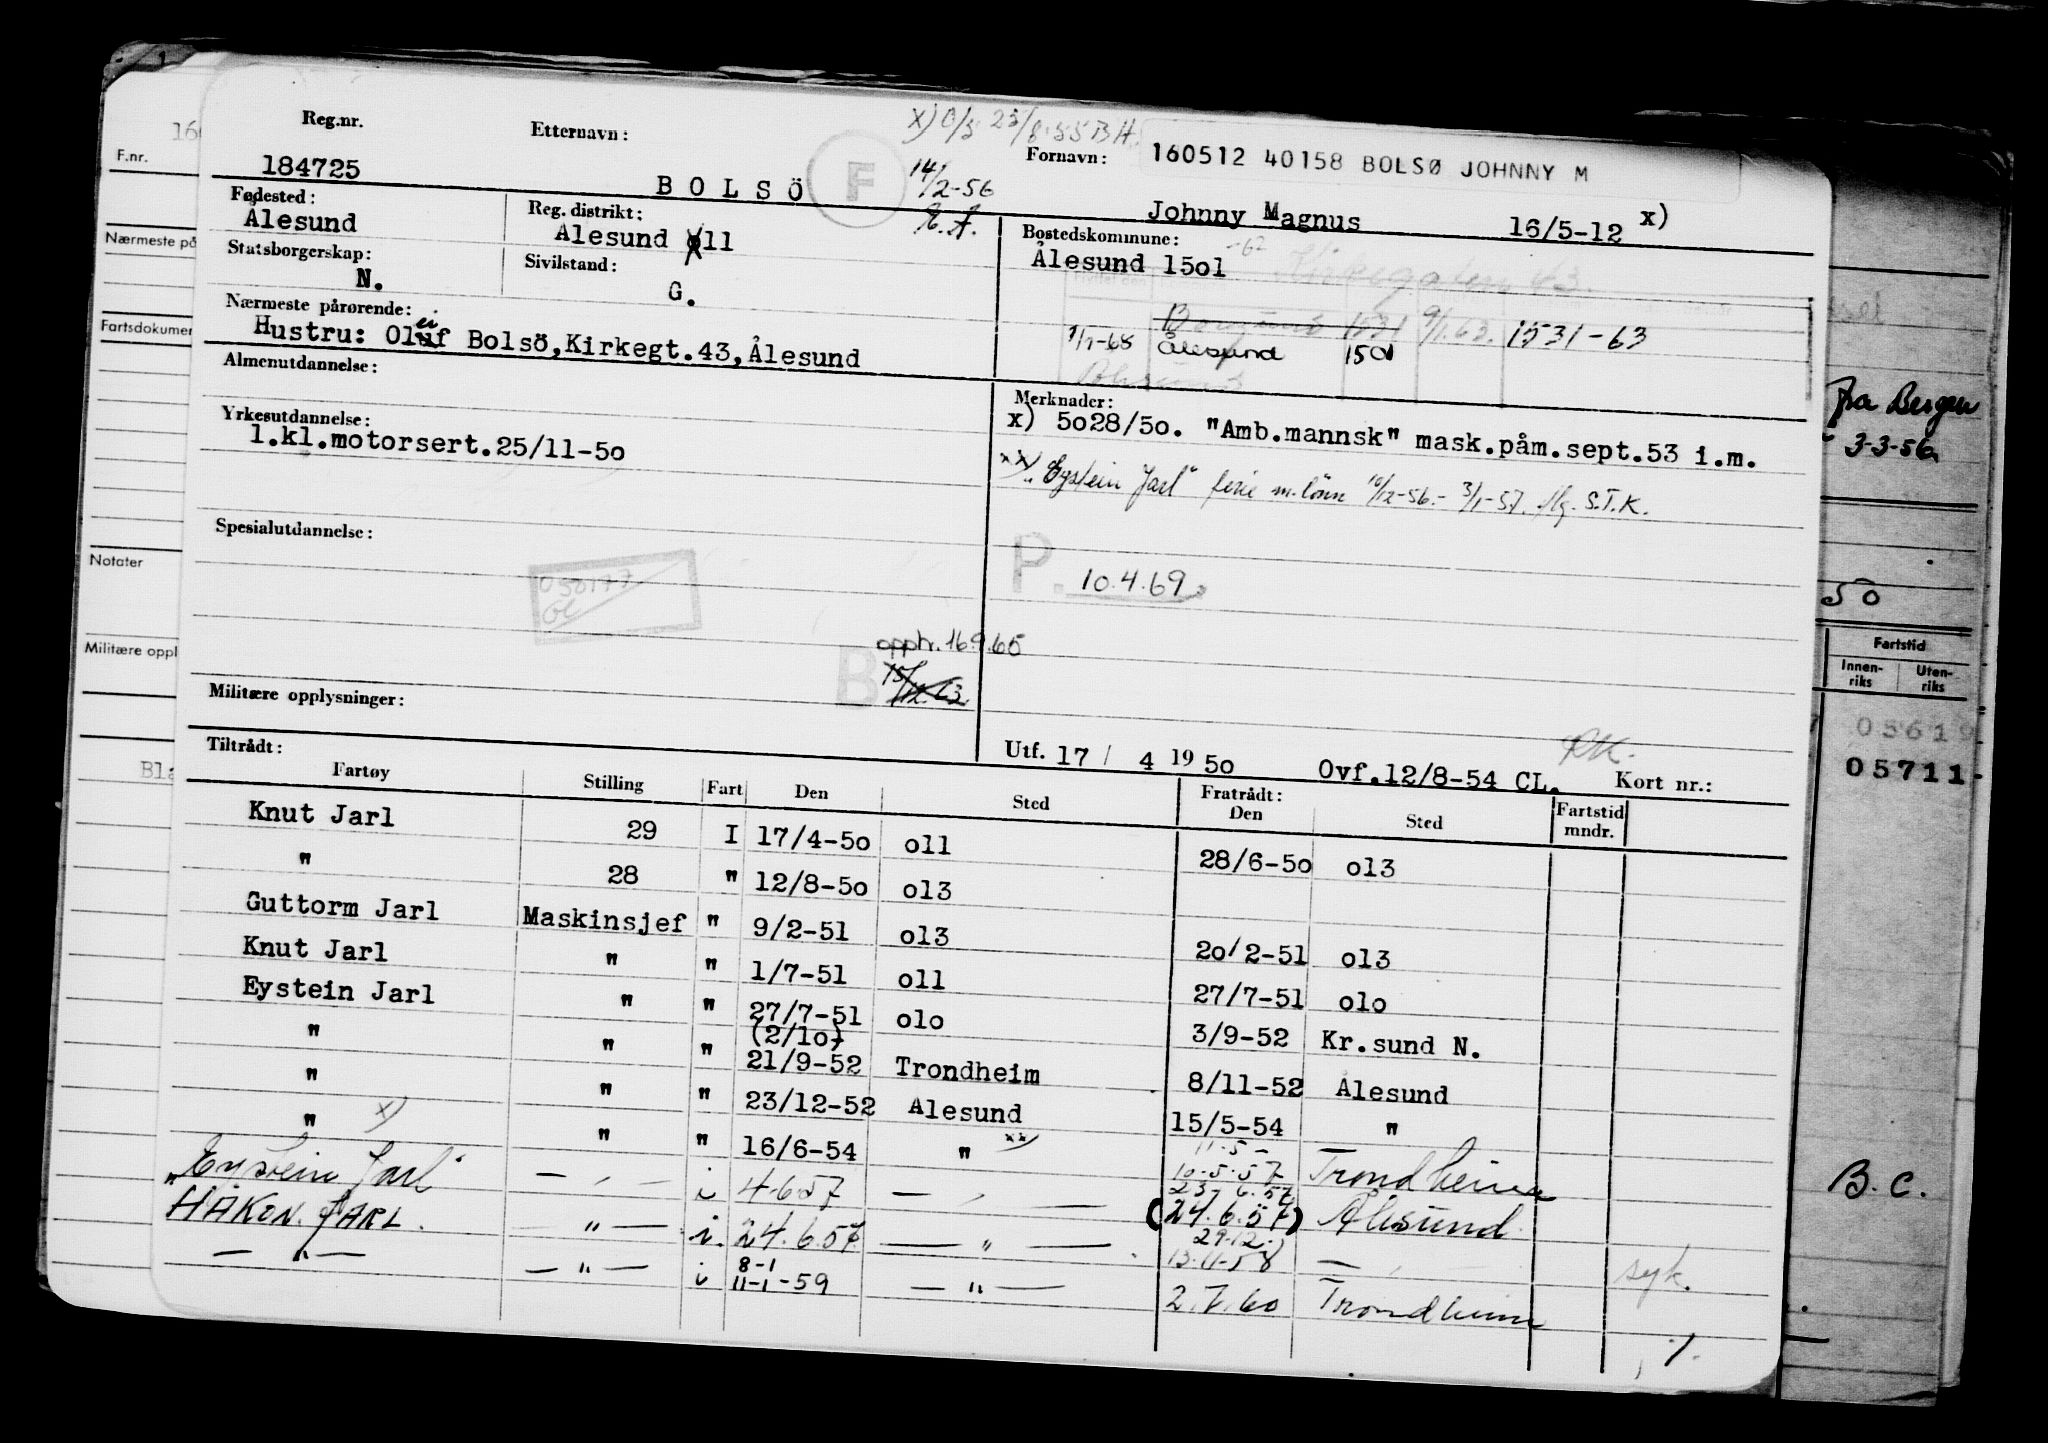 x) 0/S 23/8-55 B H.
Reg.nr. Etternavn: Fornavn: 160512 40158 BOLSØ JOHNNY M
184725 BOLSÖ F 14/2-56 Johnny Magnus 16/5-12 x)
Fødested: Reg. distrikt: Bostedskommune:
Ålesund Ålesund 011 Ålesund 15o1 -62 Kirkegaten 43.
Statsborgerskap: Sivilstand:
N. G.
Borgund 1531 9/1.63. 1531-63
Nærmeste pårørende:
Hustru: Oluf Bolsö,Kirkegt.43,Ålesund 1/1-68 Ålesund 1501
Almenutdannelse:
Merknader:
Yrkesutdannelse: x) 5o28/5o. "Amb.mannsk" mask.påm.sept.53 i.m.
1.kl.motorsert.25/11-5o
xx) "Eystein Jarl" ferie m.lönn 10/12-56.- 3/1-57. S.T.K.
Spesialutdannelse:
050177
P. 10.4.69
opphr. 16.9.65
B 15/12.63
Militære opplysninger:
Utf. 17 / 4 19 5o Ovf.12/8-54 CL. Kort nr.:
Tiltrådt: Fratrådt:
Fartøy Stilling Fart Den Sted Den Sted Fartstid mndr.
Knut Jarl 29 I 17/4-5o o11 28/6-5o o13
" 28 " 12/8-5o o13
Guttorm Jarl Maskinsjef " 9/2-51 o13 2o/2-51 o13
Knut Jarl " " 1/7-51 o11 27/7-51 o1o
Eystein Jarl " " 27/7-51 o1o 3/9-52 Kr.sund N.
(2/1o)
" " " 21/9-52 Trondheim 8/11-52 Ålesund
" " " 23/12-52 Ålesund 15/5-54 "
" x) " " 16/6-54 " xx) 11-5- 10.5.57 Trondheim
"Eystein Jarl" — " — i 4.6.57 — " — 23.6.57 (24.6.57) Ålesund
HÅKON JARL. — " — i. 24.6.57. — " — 29.12. 13.11-58 — " syk.
— " — — " — i 8-1 11-1-59 — " — 2.7.60 Trondheim
F.nr.
Nærmeste på
Fartsdokumen
Notater
Militære oppl
Bla
Fra Bergen
3-3-56
50
Fartstid
Innen- riks Uten- riks
05619
05711-
B.C.